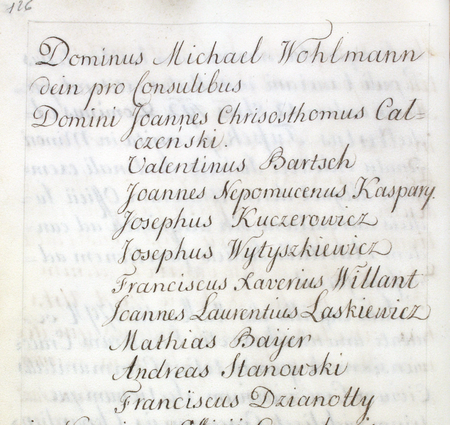 126
Dominus Michael Wohlmann
dein pro Consulibus
Domini Joannes Chrisosthomus Cal-
czeński.
Valentinus Bartsch
Joannes Nepomucenus Kaspary.
Josephus Kuczerowicz
Josephus Wytyszkiewicz
Franciscus Xaverius Willant
Joannes Laurentius Laskiewicz
Mathias Bajer
Andreas Stanowski
Franciscus Dzianotty